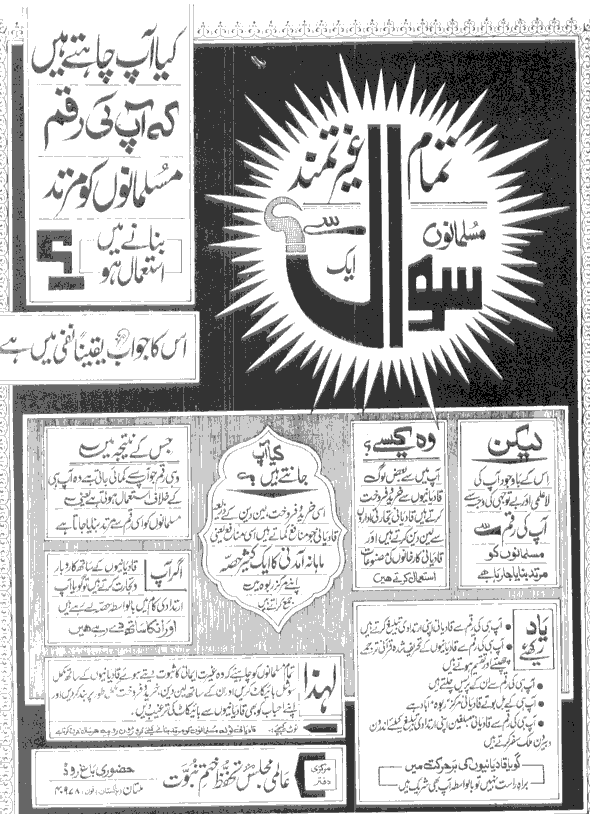 تمام غیرتمند
مسلمانوں
سے
ایک
سوال
کیا آپ چاہتے ہیں
کہ آپ کی رقم
مسلمانوں کو مرتد
بنانے میں
استعمال ہو
؟
اس کا جواب یقیناً نفی میں ہے
لیکن
اس کے باوجود آپ کی
لاعلمی اور بے توجہی کی وجہ سے
آپ کی رقم سے
مسلمانوں کو
مرتد بنایا جا رہا ہے
وہ کیسے؟
آپ میں سے بعض لوگ
قادیانیوں سے خرید و فروخت
کرتے ہیں قادیانی تجارتی اداروں
سے لین دین کرتے ہیں اور
قادیانی کارخانوں کی مصنوعات
استعمال کرتے ہیں
کیا آپ
جانتے ہیں کہ
اسی خرید و فروخت، لین دین کے ذریعہ
قادیانی جو منافع کماتے ہیں اسی منافع یعنی
ماہانہ آمدنی کا ایک کثیر حصہ
اپنے مرکز ربوہ میں
جمع کراتے ہیں
جس کے نتیجہ میں
وہی رقم جو آپ سے کمائی جاتی ہے وہ آپ ہی
کے خلاف استعمال ہوتی ہے یعنی
مسلمانوں کو اسی رقم سے مرتد بنایا جاتا ہے
اگر آپ
قادیانیوں کے ساتھ کاروبار
و تجارت کرتے ہیں تو گویا آپ
ارتدادی کام میں بالواسطہ حصہ لے رہے ہیں
اور ان کا ساتھ دے رہے ہیں
یاد رکھیے
آپ ہی کی رقم سے قادیانی اپنی ارتدادی تبلیغ کرتے ہیں
آپ ہی کی رقم سے قادیانیوں کے تحریف شدہ قرآنی ترجمے
چھپتے اور تقسیم ہوتے ہیں
آپ ہی کی رقم سے ان کے پریس چلتے ہیں
آپ ہی کے بل بوتے قادیانی مرکز ربوہ آباد ہے
آپ ہی کی رقم سے قادیانی مبلغین اپنی ارتدادی تبلیغ کیلئے اندرون
بیرون ملک سفر کرتے ہیں
گویا قادیانیوں کی ہر حرکت میں
براہ راست نہیں تو بالواسطہ آپ بھی شریک ہیں
لہٰذا
تمام مسلمانوں کو چاہیئے کہ وہ غیرت ایمانی کا ثبوت دیتے ہوئے قادیانیوں کے ساتھ مکمل
سوشل بائیکاٹ کریں اور ان کے ساتھ لین دین، خرید و فروخت مکمل طور پر بند کر دیں اور
اپنے احباب کو بھی قادیانیوں سے بائیکاٹ کی ترغیب دیں۔
نوٹ کیجئے:-
مرکزی دفتر
عالمی مجلس تحفظ ختم نبوت
حضوری باغ روڈ
ملتان (پاکستان) فون: ۴۰۹۷۸